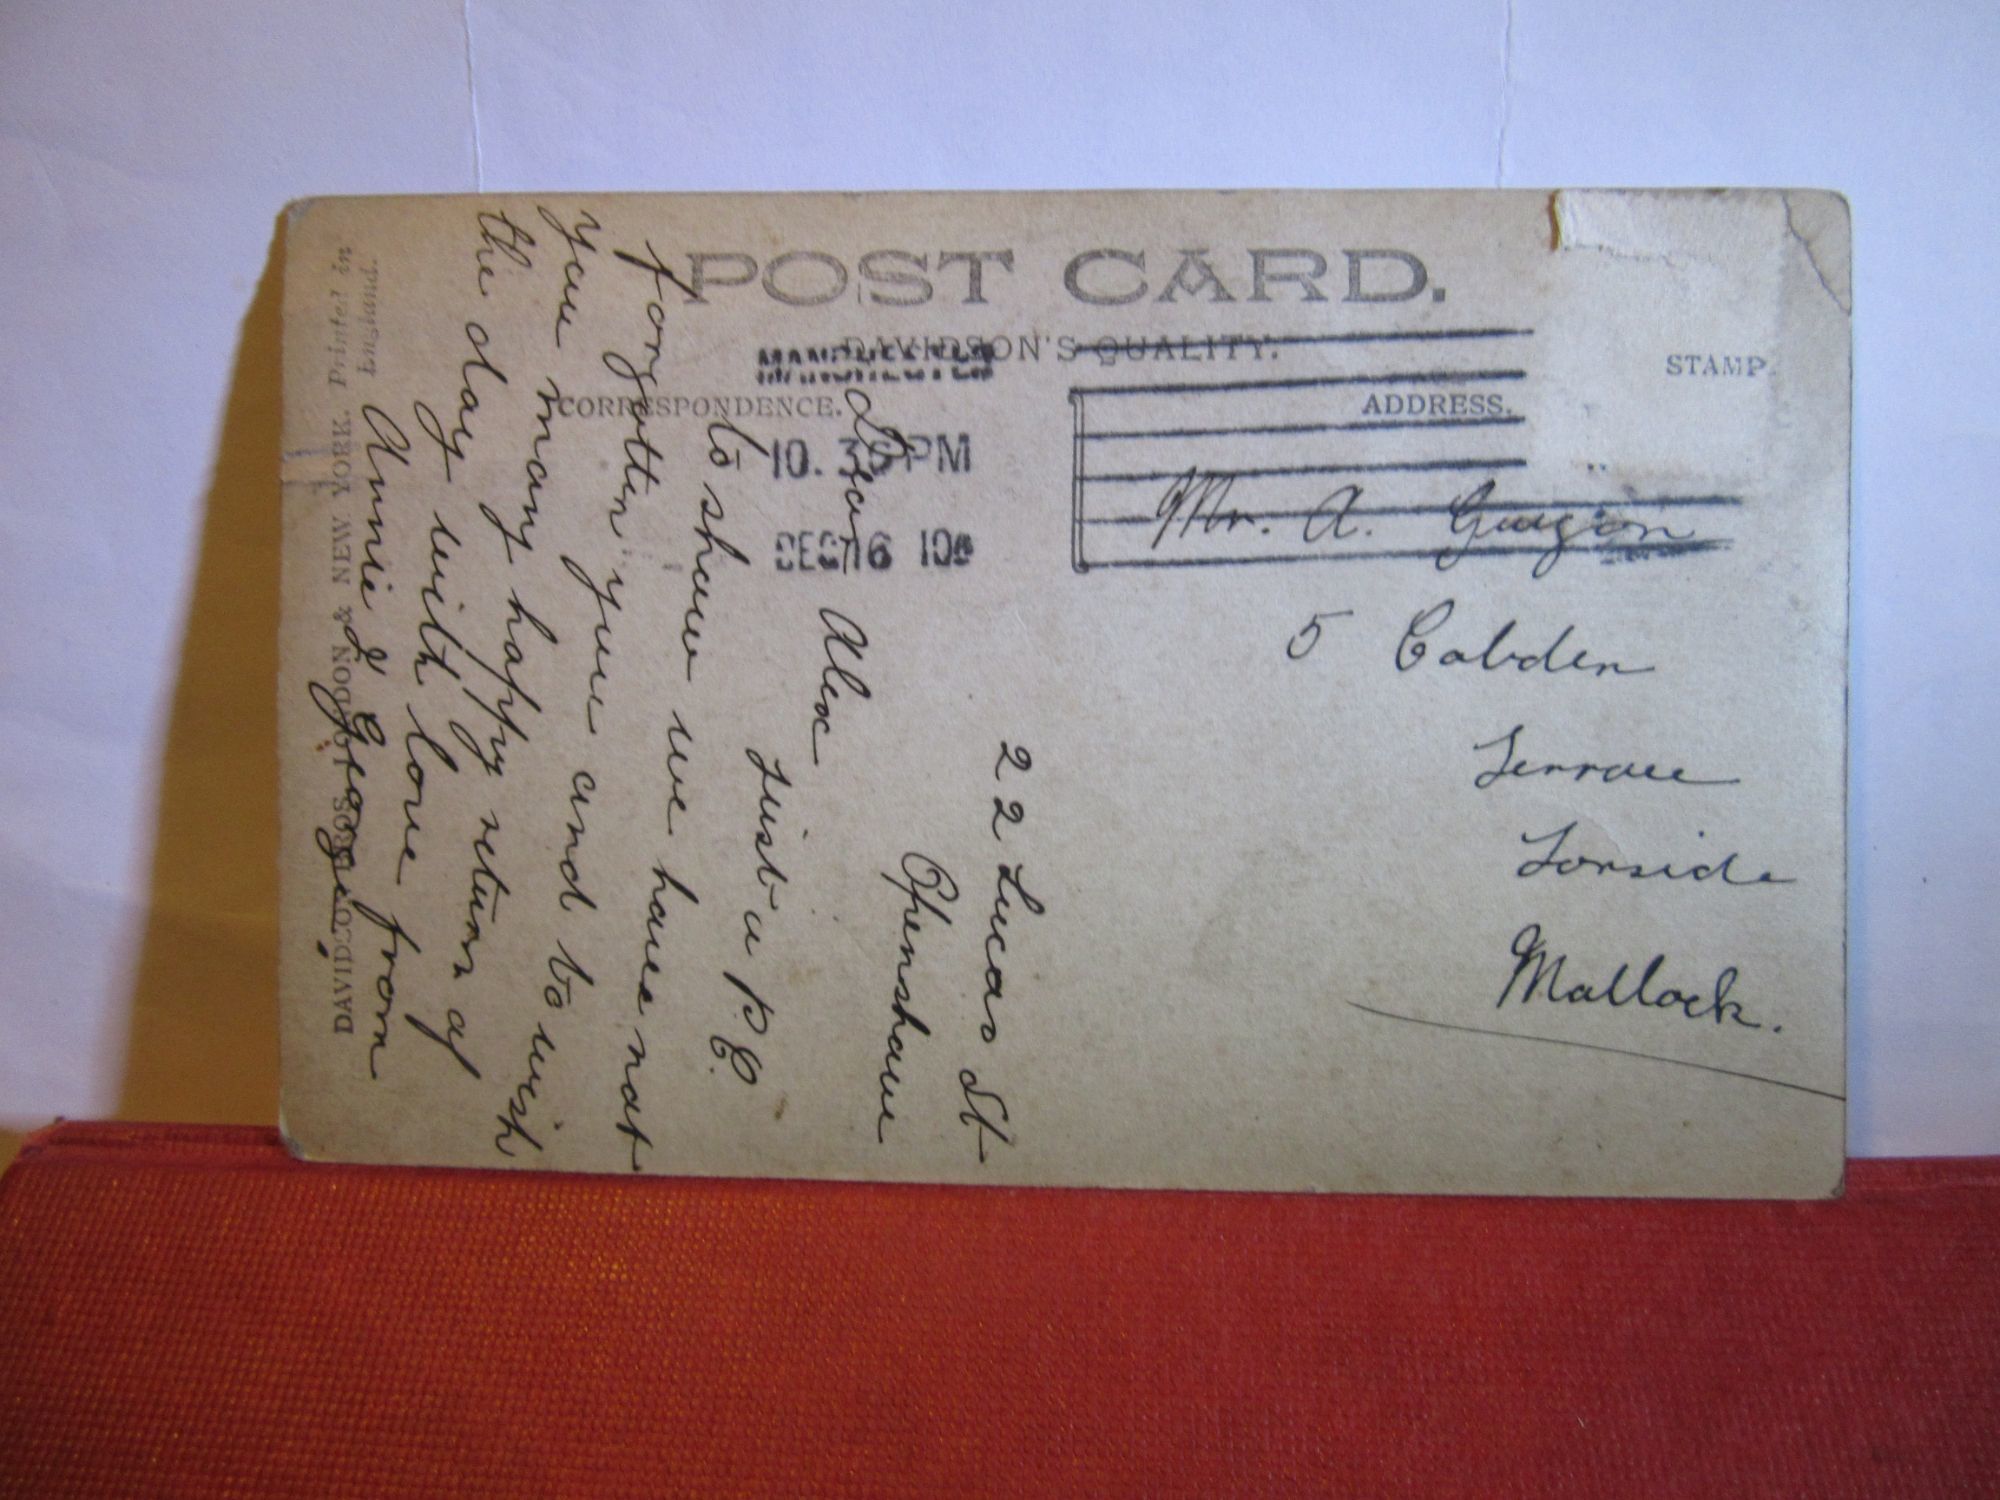 POST CARD.
DAVIDSON'S QUALITY.
CORRESPONDENCE.
ADDRESS.
STAMP.
MANCHESTER
10.30 PM
DEC 16 10
Mr. A.
5 Cobden
Terrace
Torside
Matlock.
22 Lucas St
Openshaw
Dear Alex
Just a P.C.
to show we have not
forgotten you and to wish
you many happy return of
the day with love from
Annie & Georgie.
DAVIDSON BROS. LONDON & NEW YORK. Printed in
England.